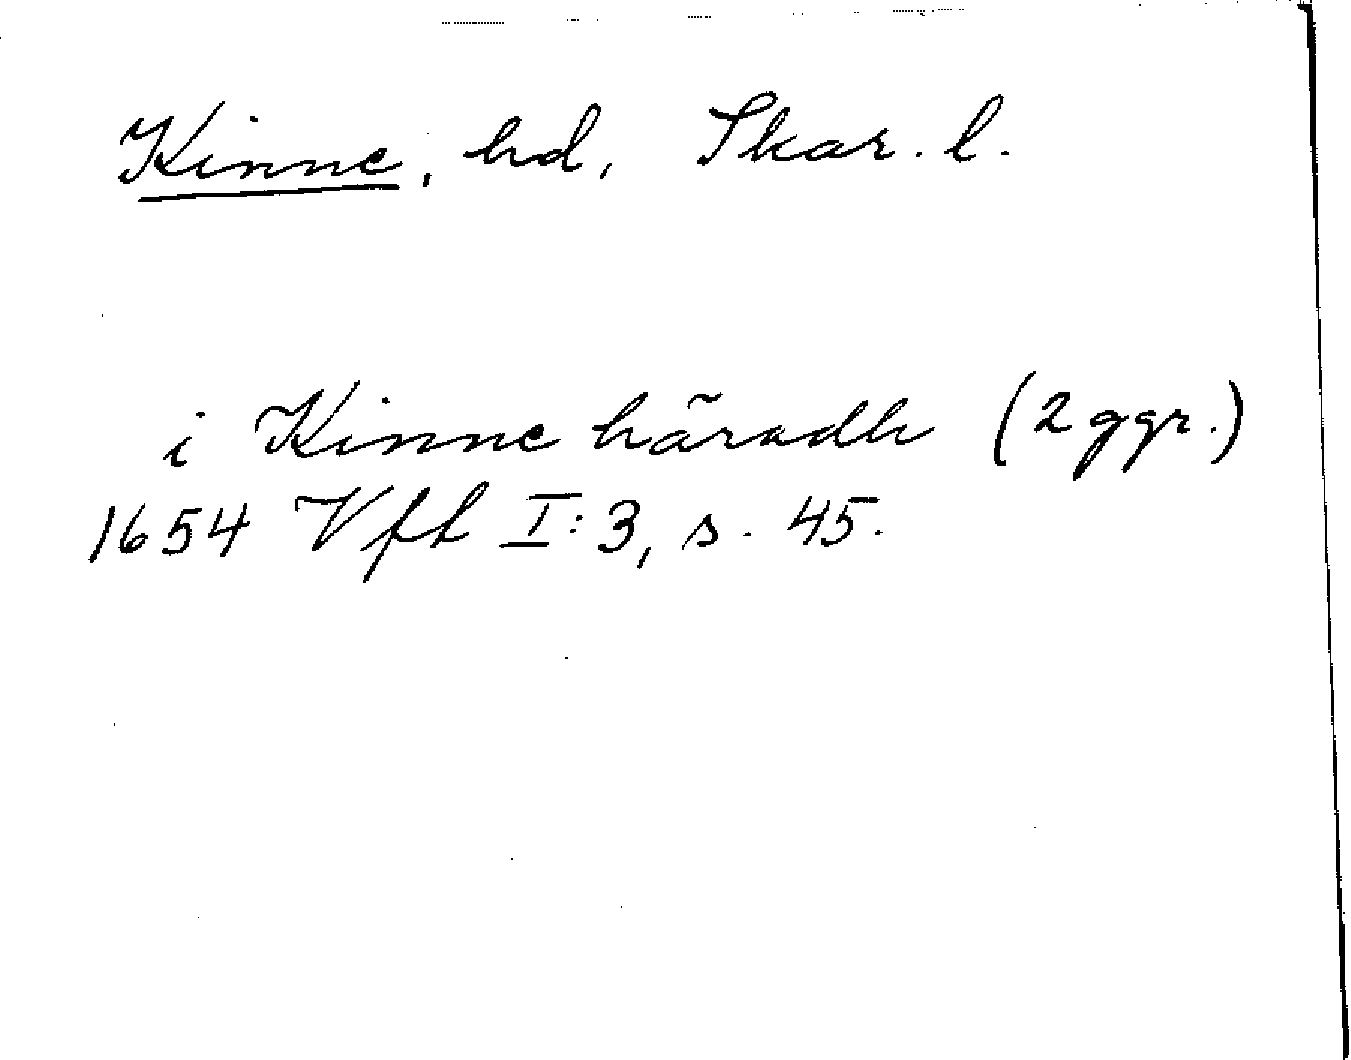 Kinne, hd, Skar. l.
i Kinne häradh (2 ggr.)
1654 Vft I:3, s. 45.